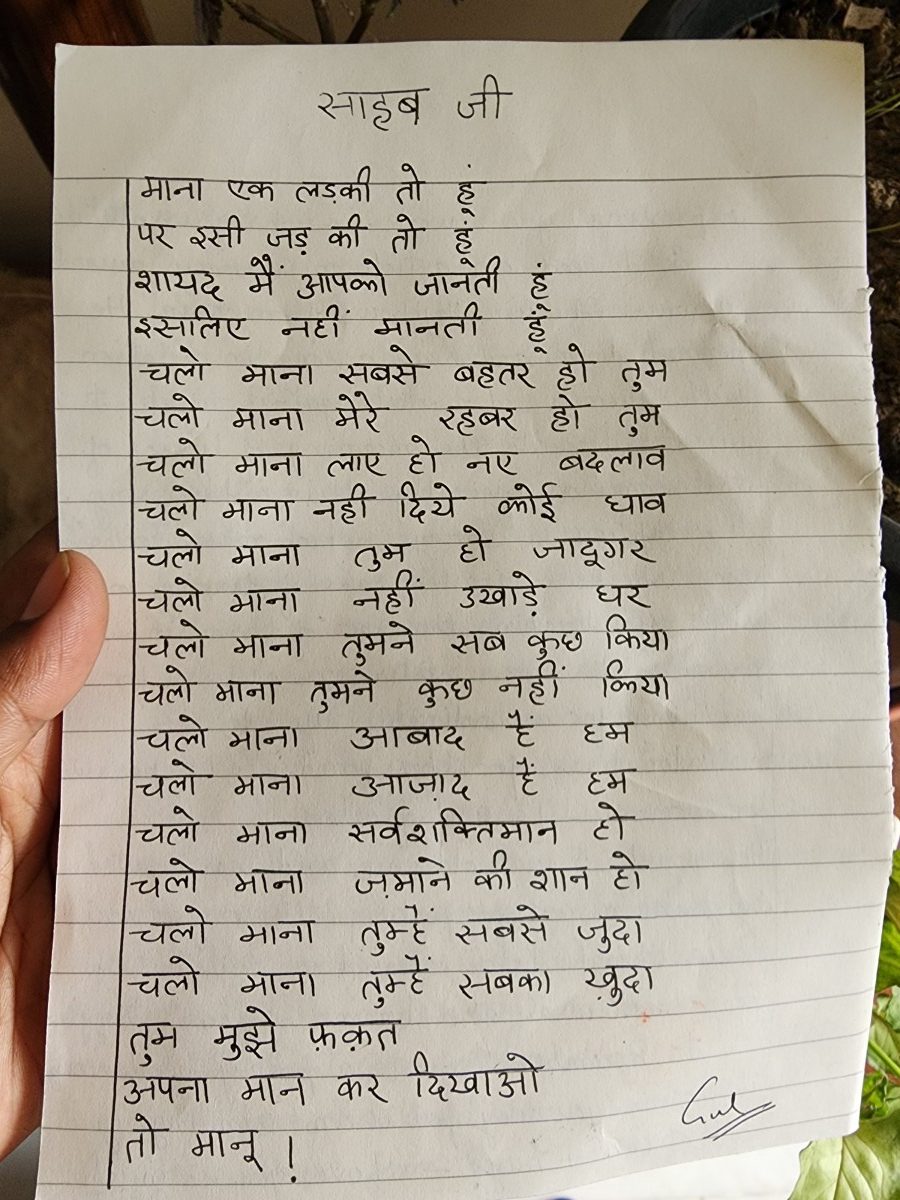 साहब जी
माना एक लड़की तो हूं
पर इसी जड़ की तो हूं
शायद मैं आपको जानती हूं
इसलिए नहीं मानती हूं
चलो माना सबसे बहतर हो तुम
चलो माना मेरे रहबर हो तुम
चलो माना लाए हो नए बदलाव
चलो माना नही दिये कोई घाव
चलो माना तुम हो जादूगर
चलो माना नहीं उखाड़े घर
चलो माना तुमने सब कुछ किया
चलो माना तुमने कुछ नहीं किया
चलो माना आबाद हैं हम
चलो माना आज़ाद हैं हम
चलो माना सर्वशक्तिमान हो
चलो माना ज़माने की शान हो
चलो माना तुम्हैं सबसे जुदा
चलो माना तुम्हैं सबका ख़ुदा
तुम मुझे फ़क़त
अपना मान कर दिखाओ
तो मानू !